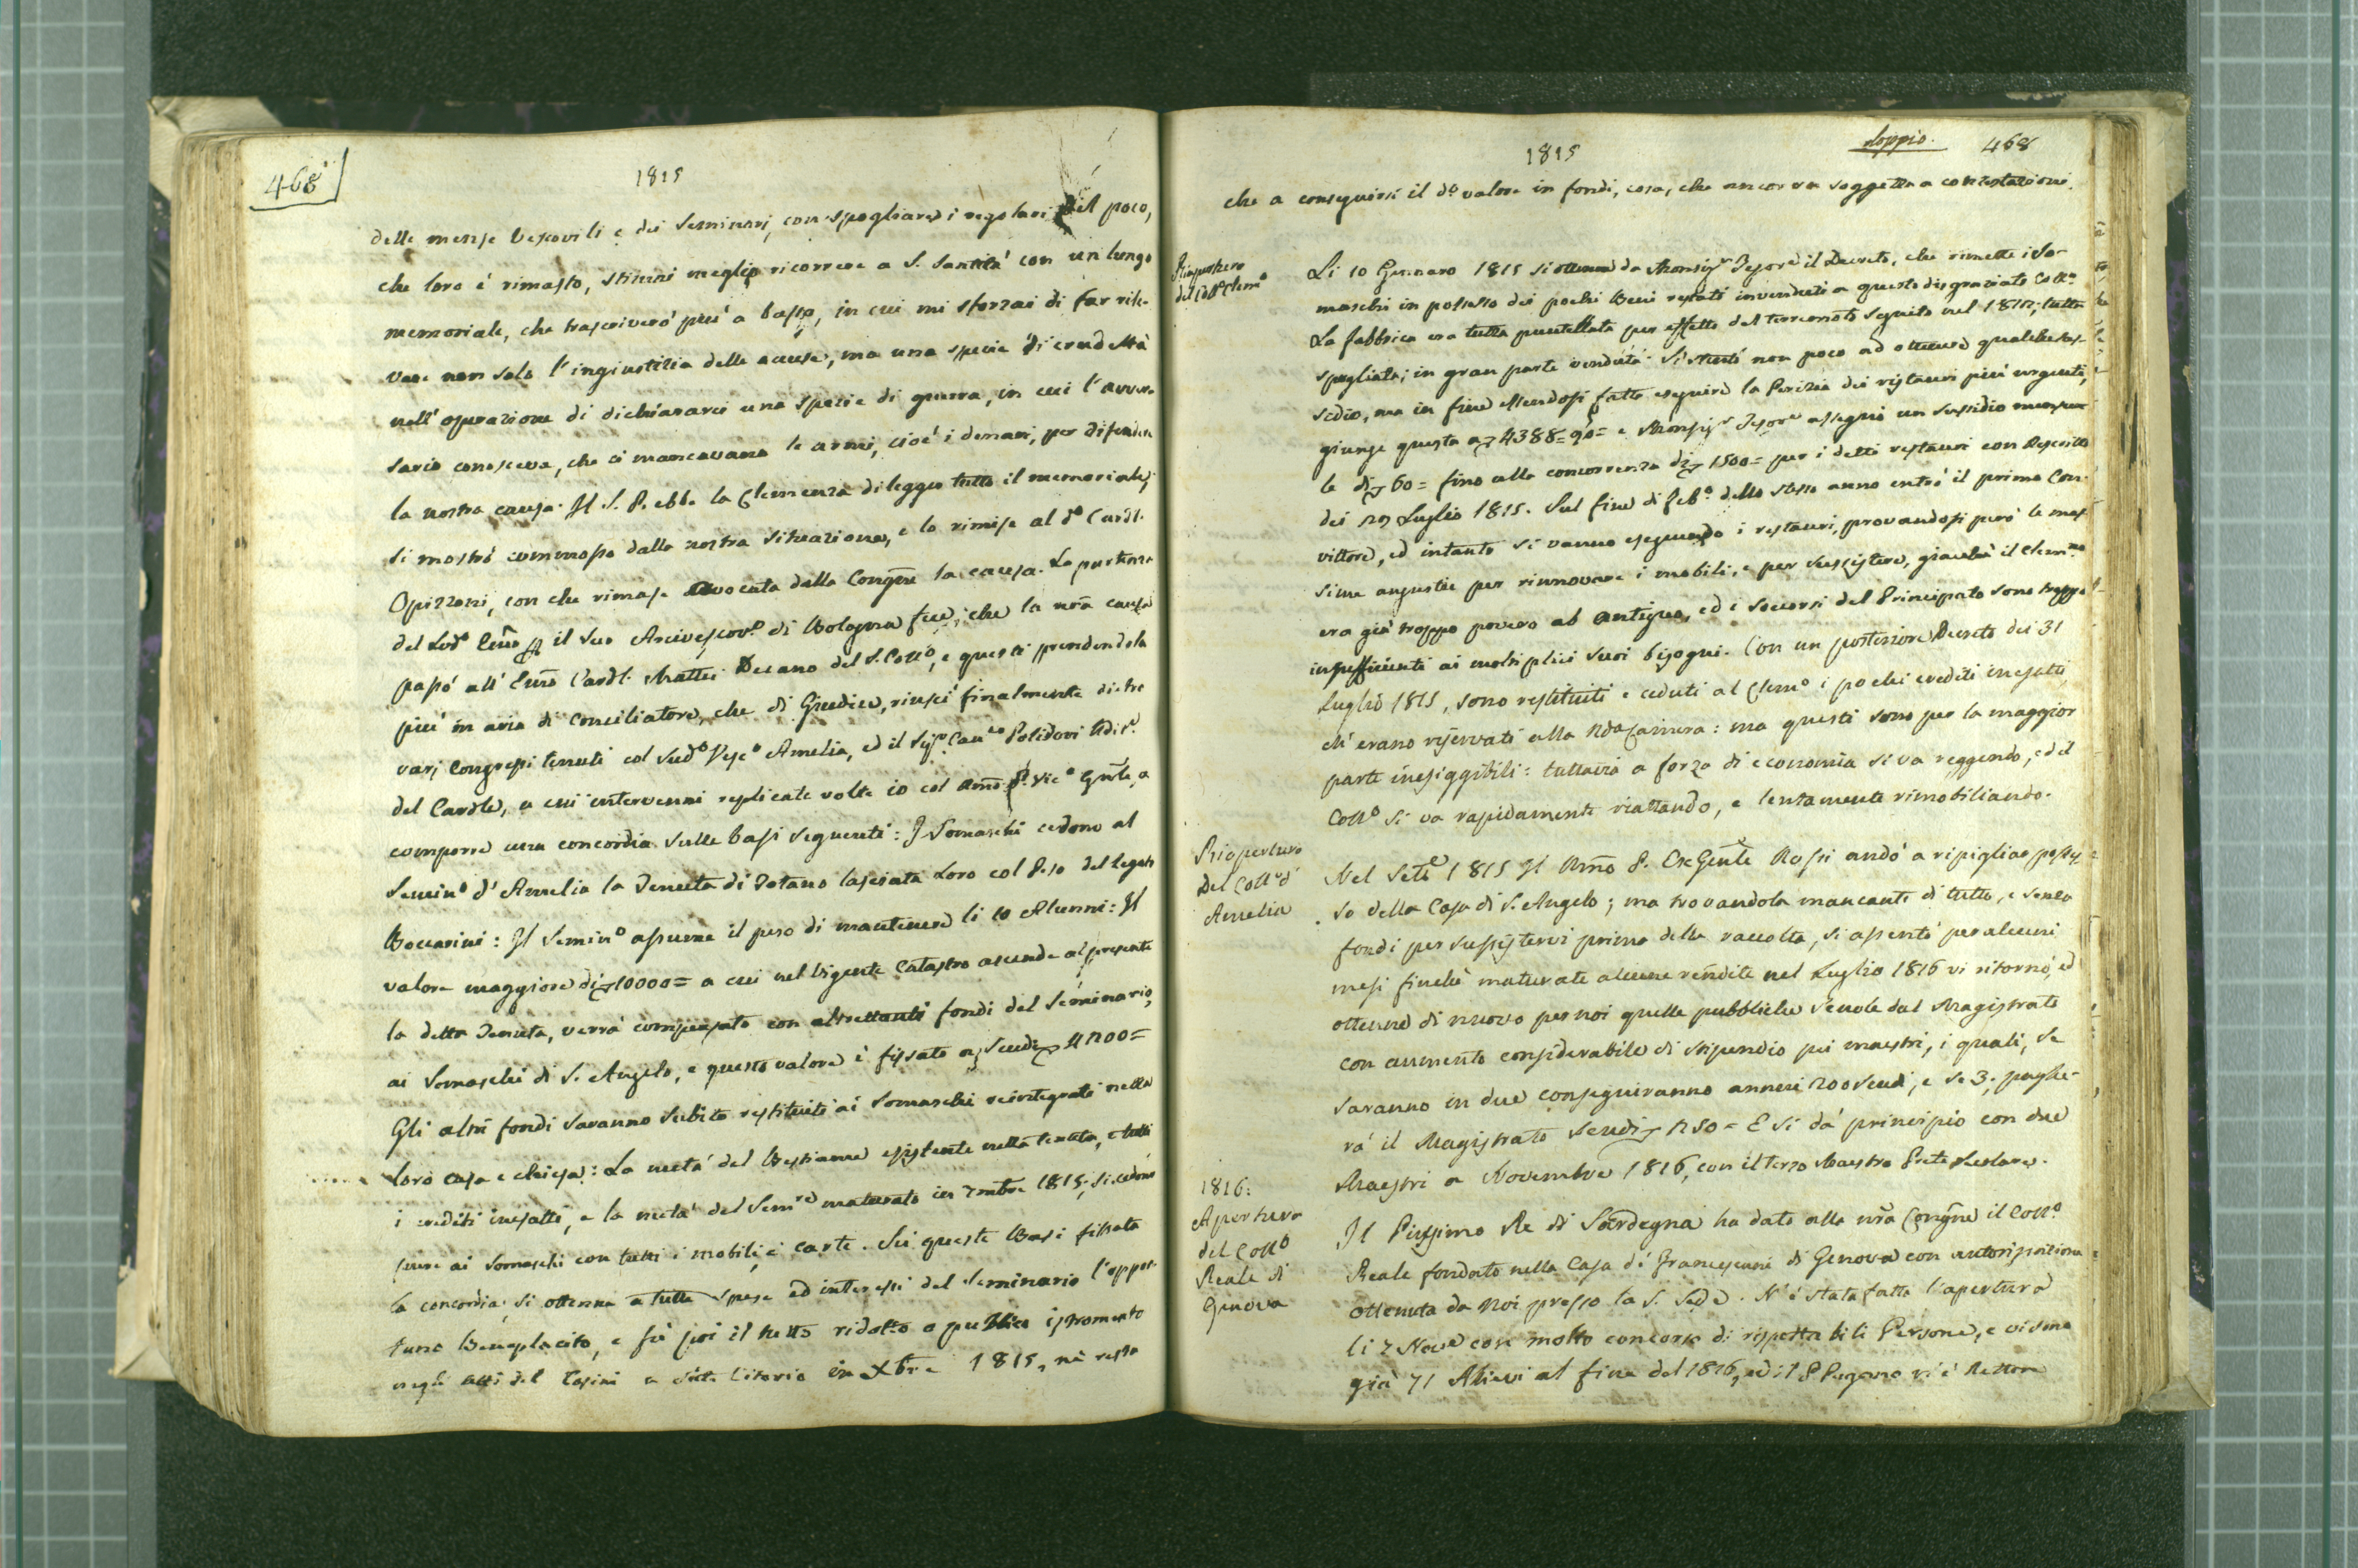 468
1815
delle mense Vescovili e dei Seminarj, con spogliare i regolari del poco,
che loro è rimasto, stimai meglio ricorrere a S. Santità con un lungo
memoriale, che trascriverò più a basso, in cui mi sforzai di far rile-
vare non solo l'ingiustizia delle accuse, ma una specie di crudeltà
nell'operazione di dichiararci una specie di guerra, in cui l'avver-
sario conosceva, che ci mancavano le armi, cioè i denari, per difendere
la nostra causa. Il S. P. ebbe la Clemenza di legger tutto il memoriale,
si mostrò commosso dalla nostra situazione, e lo rimise al do Cardl.
Opizzoni, con che rimase avocata dalla Congne la causa. La partenza
del Lodo Emo il suo Arcivescovo di Bologna fece, che la nra causa
passò all'Emo Cardl. Mattei Decano del S. Collo, e questi prendendola
più in aria di Conciliatore, che di Giudice, riuscì finalmente dietro
varj congressi tenuti col sudo Vesco Amelia, ed il Sigr Canco Polidori Udire
del Cardle, a cui intervenni replicate volte io col Rmo P. Vico Gnle, a
comporre una concordia sulle basi seguenti: I Somaschi cedono al
Semino d'Amelia la Tenuta di Totano lasciata Loro col Peso del legato
Boccarini: Il Semino assume il peso di mantenere li 10 Alunni: Il
valore maggiore di 10000= a cui nel vigente Catastro ascende al presente
la detta Tenuta, verrà compensato con altrettanti fondi del Seminario,
ai Somaschi di S. Angelo, e questo valore è fissato a Scudi 4200=
Gli altri fondi saranno subito restituiti ai Somaschi reintegrati nella
loro casa e chiesa: La metà del Bestiame esistente nella tenuta, e tutti
i crediti inesatti, e la metà del Semre maturato in 7mbre 1815; si cedono
pure ai Somaschi con tutti i mobili, e carte. Su queste Basi fissata
la concordia, si ottenne a tutte spese ed interessi del Seminario l'oppor-
tuno Beneplacito, e fu poi il tutto ridotto a pubblico istromento
negli atti del Tosini a Monte Citorio in Xbre 1815, nè resta
doppio. 468
1815
che a conseguirsi il do valore in fondi, cosa, che ancor va soggetta a contestazioni.
Riapertura
del Collo Clemno
Li 10 Gennaro 1815 si ottenne da Monsigr Tesore il Decreto, che rimette i So-
maschi in possesso dei pochi Beni restati invenduti a questo disgraziato Collo
La fabbrica era tutta puntellata per effetto del terremoto seguito nel 1812; tutta
spogliata; in gran parte venduta. Si stentò non poco ad ottenere qualche sus-
sidio, ma in fine essendosi fatta eseguire la Perizia dei ristauri più urgenti,
giunse questa a 4388=90= e Monsigr Tesore assegnò un sussidio mensua-
le di 60= fino alla concorrenza di 1500= per i detti restauri con Rescritto
dei 29 Luglio 1815. Sul fine di Febo dello stesso anno entrò il primo Con-
vittore, ed intanto si vanno eseguendo i restauri, provandosi però le mas-
sime angustie per rinnovare i mobili, e per sussistere, giacchè il Clemno
era già troppo povero ab antiquo, ed i soccorsi del Principato sono troppo
insufficienti ai moltiplici suoi bisogni. Con un posteriore Decreto dei 31
Luglio 1815, sono restituiti e ceduti al Clemo i pochi crediti inesatti
ch'erano riservati alla Rda Camera: ma questi sono per la maggior
parte inesiggibili: tuttavia a forza di economia si va reggendo, ed il
Collo si va rapidamente riattando, e lentamente rimobiliando.
Riapertura
Del Collo d'
Amelia
Nel Sette 1815 Il Rmo P. Ex Genle Rossi andò a ripigliar posses-
so della Casa di S. Angelo; ma trovandola mancante di tutto, e senza
fondi per sussistervi prima della raccolta, si assentò per alcuni
mesi finchè maturate alcune rendite nel Luglio 1816 vi ritornò, ed
ottenne di nuovo per noi quelle pubbliche scuole dal Magistrato
con aumento considerabile di stipendio pei maestri, i quali, se
saranno in due conseguiranno annui 200 scudi, e se 3; paghe-
rà il Magistrato scudi 250= E si dà principio con due
Maestri a Novembre 1816, con il terzo Maestro Prete Secolare.
1816:
Apertura
del Collo
Reale di
Genova
Il Piissimo Re di Sardegna ha dato alla nra Congne il Collo
Reale fondato nella Casa di Francescani di Genova con autorizzazione
ottenuta da noi presso la S. Sede. N'è stata fatta l'apertura
li 2 Nove con molto concorso di rispettabili Persone, e vi sono
già 71 Allievi al fine del 1816, ed il P Pagano vi è Rettore